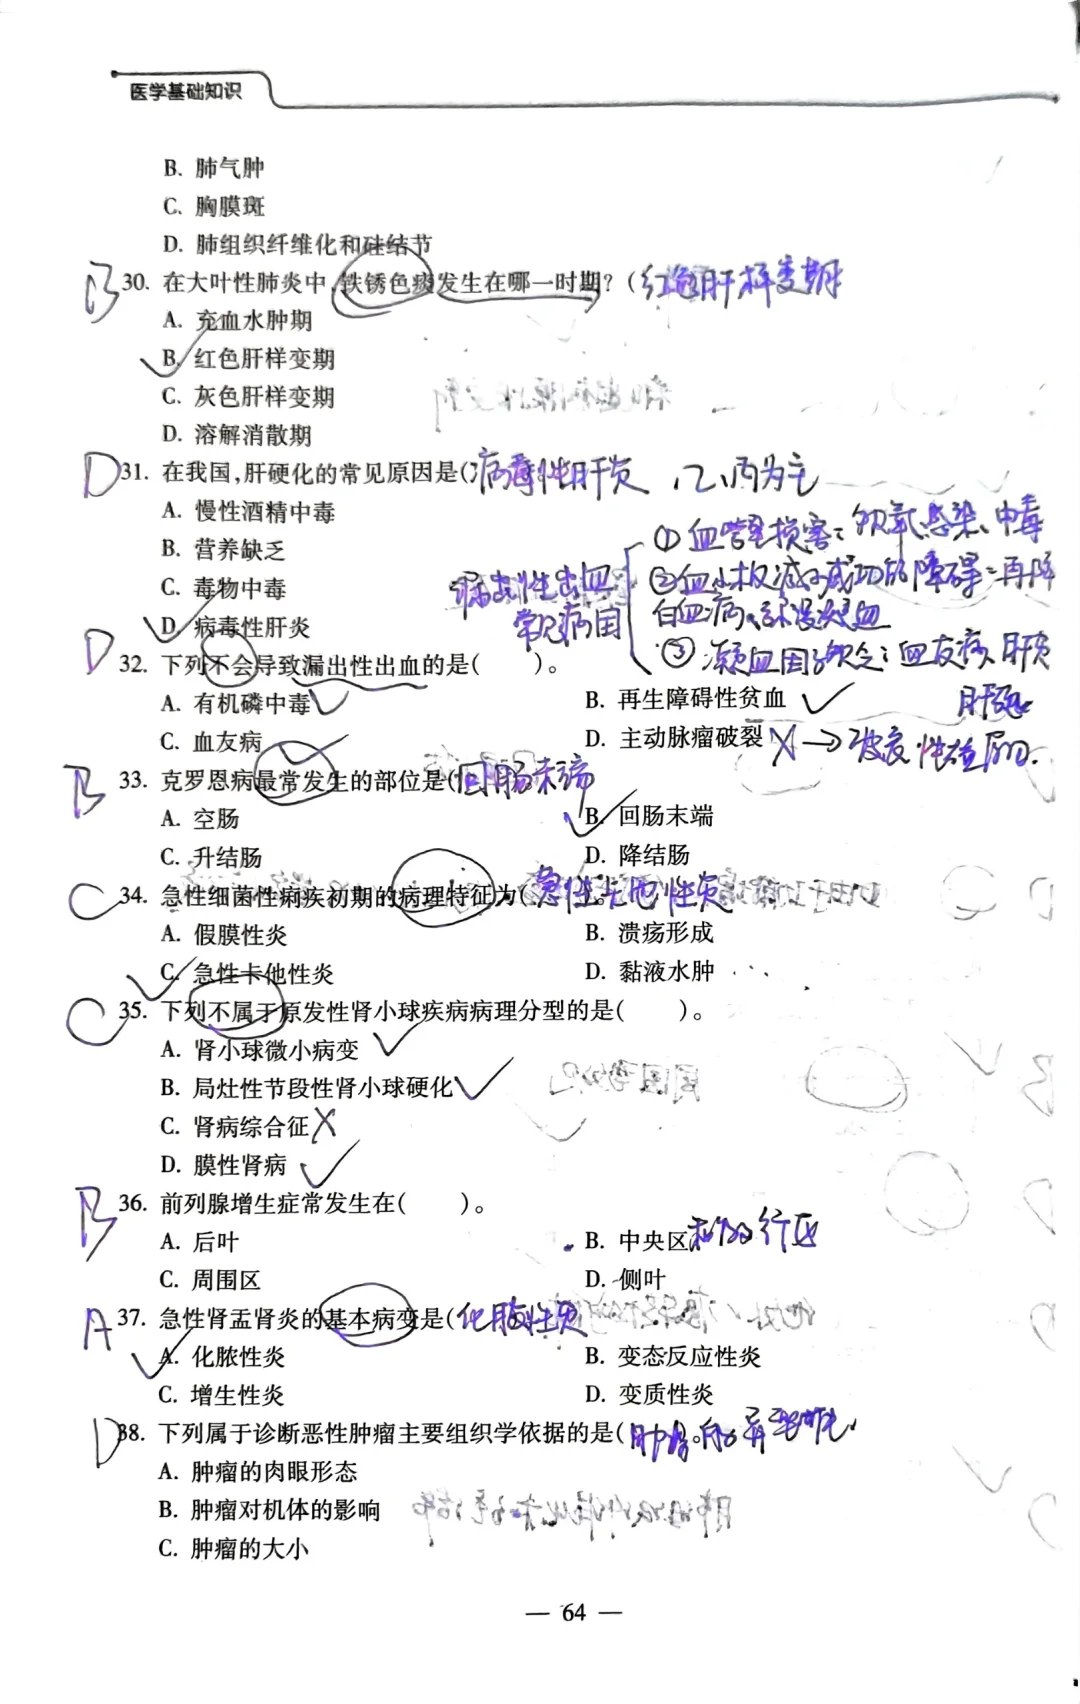 医学基础知识
B. 肺气肿
C. 胸膜斑
D. 肺组织纤维化和硅结节
B 30. 在大叶性肺炎中,铁锈色痰发生在哪一时期?(红色肝样变期
A. 充血水肿期
B. 红色肝样变期
C. 灰色肝样变期
D. 溶解消散期
D 31. 在我国,肝硬化的常见原因是( 病毒性肝炎,乙、丙为主
A. 慢性酒精中毒
B. 营养缺乏
C. 毒物中毒
D. 病毒性肝炎
漏出性出血
常见病因
①血管壁损害:缺氧、感染、中毒
②血小板减少或功能障碍:再障
白血病、
③凝血因子缺乏:血友病、肝炎
肝硬化
D 32. 下列不会导致漏出性出血的是( )。
A. 有机磷中毒
B. 再生障碍性贫血
C. 血友病
D. 主动脉瘤破裂 X→破裂性出血.
B 33. 克罗恩病最常发生的部位是(回肠末端
A. 空肠
B. 回肠末端
C. 升结肠
D. 降结肠
C 34. 急性细菌性痢疾初期的病理特征为(急性卡他性炎
A. 假膜性炎
B. 溃疡形成
C. 急性卡他性炎
D. 黏液水肿
C 35. 下列不属于原发性肾小球疾病病理分型的是( )。
A. 肾小球微小病变
B. 局灶性节段性肾小球硬化
C. 肾病综合征 X
D. 膜性肾病
B 36. 前列腺增生症常发生在( )。
A. 后叶
B. 中央区和移行区
C. 周围区
D. 侧叶
A 37. 急性肾盂肾炎的基本病变是(化脓性炎
A. 化脓性炎
B. 变态反应性炎
C. 增生性炎
D. 变质性炎
D 38. 下列属于诊断恶性肿瘤主要组织学依据的是(肿瘤的异型性
A. 肿瘤的肉眼形态
B. 肿瘤对机体的影响
C. 肿瘤的大小
— 64 —